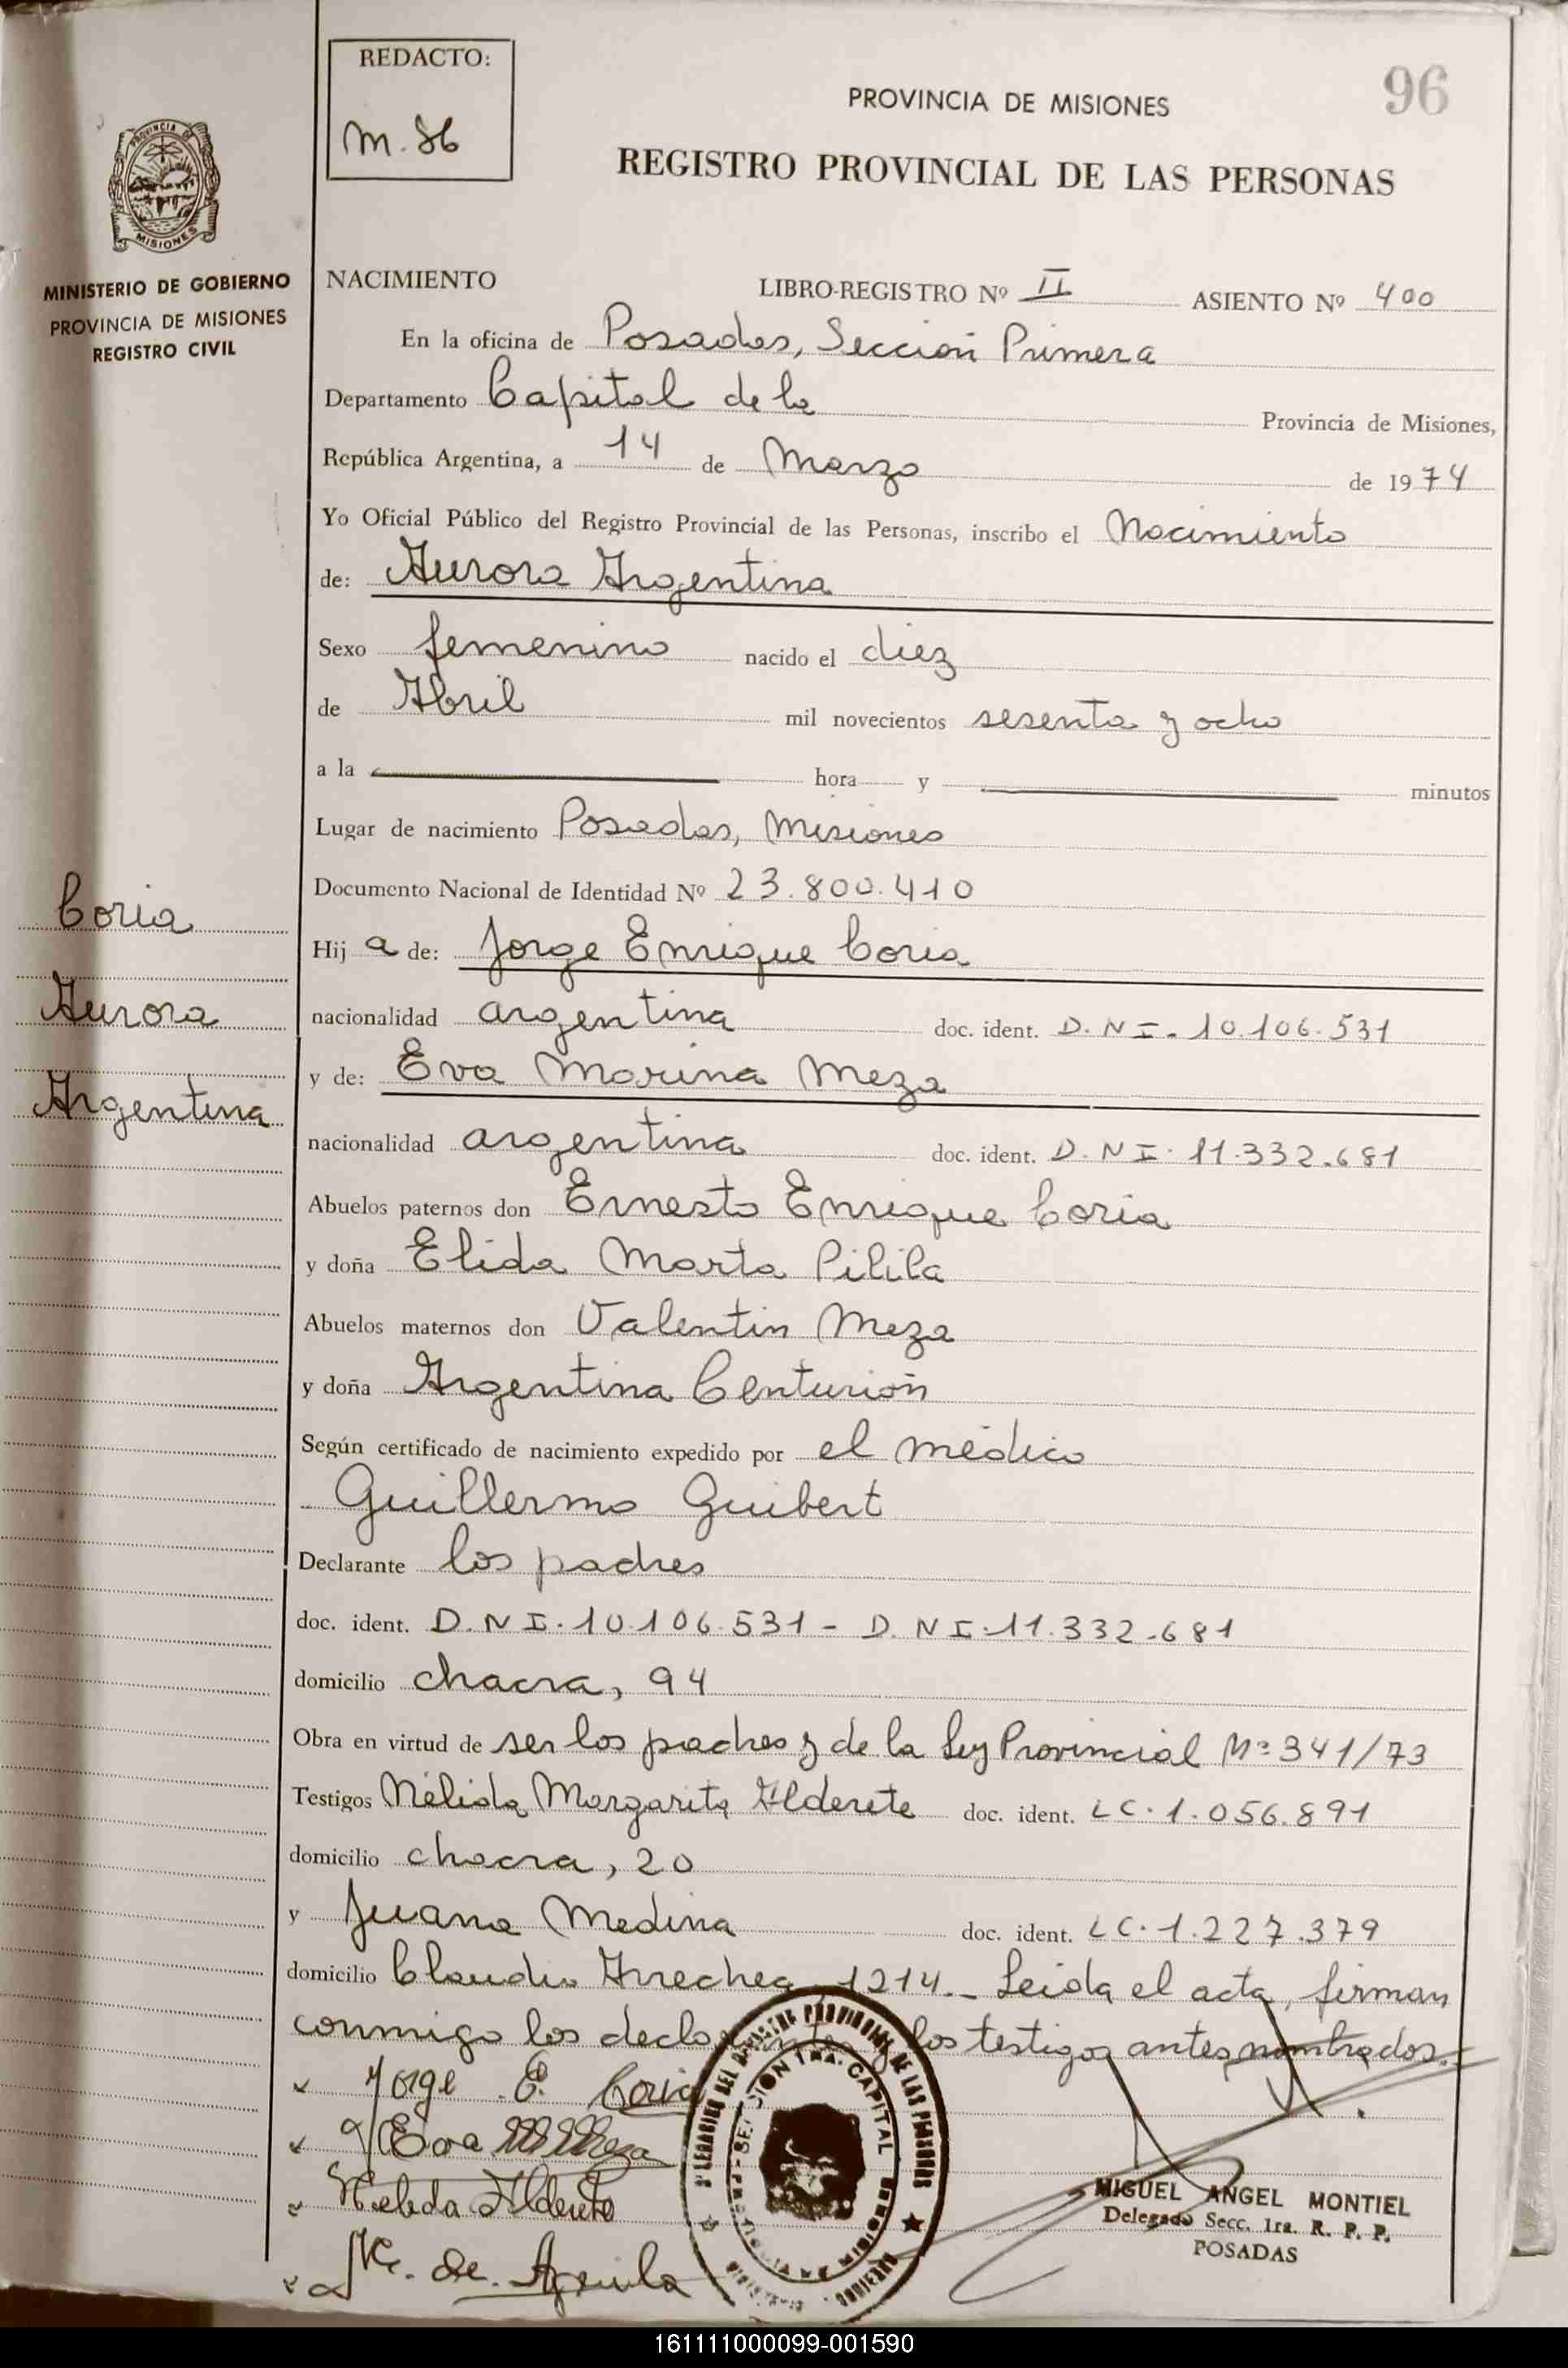 REDACTO:
M. 86
96
PROVINCIA DE MISIONES
REGISTRO PROVINCIAL DE LAS PERSONAS
PROVINCIA DE
MISIONES
MINISTERIO DE GOBIERNO
PROVINCIA DE MISIONES
REGISTRO CIVIL
NACIMIENTO LIBRO-REGISTRO Nº II ASIENTO Nº 400
En la oficina de Posadas, Sección Primera
Departamento Capital de la Provincia de Misiones,
República Argentina, a 14 de Marzo de 1974
Yo Oficial Público del Registro Provincial de las Personas, inscribo el Nacimiento
de: Aurora Argentina
Sexo femenino nacido el diez
de Abril mil novecientos sesenta y ocho
a la hora y minutos
Lugar de nacimiento Posadas, Misiones
Documento Nacional de Identidad Nº 23.800.410
Coria
Aurora
Argentina
Hij a de: Jorge Enrique Coria
nacionalidad argentina doc. ident. D.N.I. 10.106.531
y de: Eva Marina Meza
nacionalidad argentina doc. ident. D.N.I. 11.332.681
Abuelos paternos don Ernesto Enrique Coria
y doña Elida Marta Pilila
Abuelos maternos don Valentin Meza
y doña Argentina Centurión
Según certificado de nacimiento expedido por el médico
Guillermo Guibert
Declarante los padres
doc. ident. D.N.I. 10.106.531 - D.N.I. 11.332.681
domicilio chacra, 94
Obra en virtud de ser los padres y de la Ley Provincial Nº 341/73
Testigos Nélida Margarita Alderete doc. ident. LC. 1.056.891
domicilio chacra, 20
y Juana Medina doc. ident. LC. 1.227.379
domicilio Claudio Arrechea, 1214.- Leída el acta, firman
conmigo los declarantes y los testigos antes nombrados.-
Jorge E. Coria
Eva Meza
Nelida Alderete
de Aguila
SECCION 1RA. CAPITAL
MIGUEL ANGEL MONTIEL
Delegado Secc. 1ra. R. P. P.
POSADAS
161111000099-001590